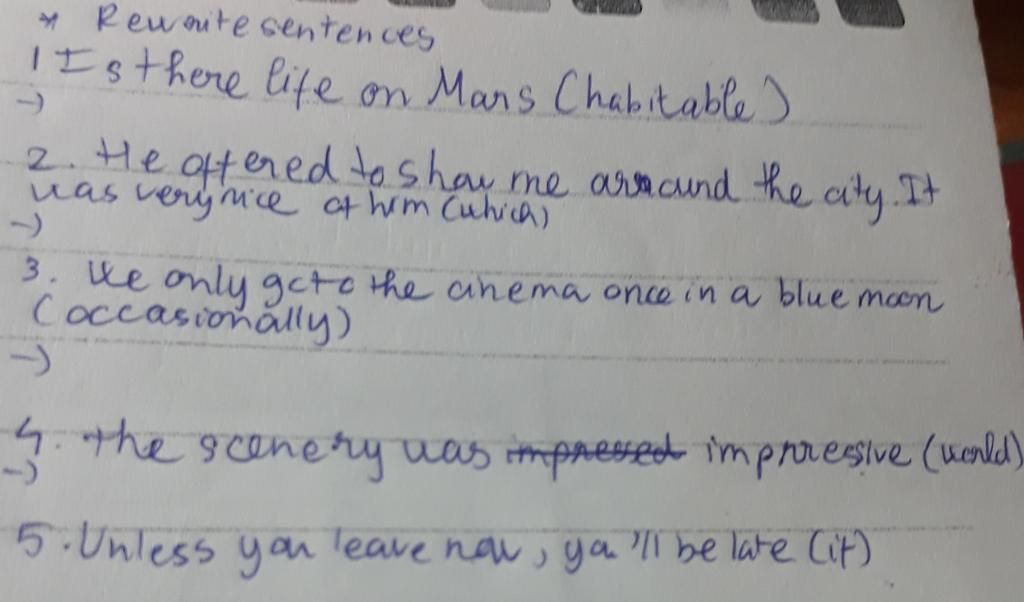 * Rewrite sentences
1 Is there life on Mars (habitable)
→
2. He offered to show me around the city. It
was very nice of him (which)
→
3. We only go to the cinema once in a blue moon
(occasionally)
→
4. The scenery was impressed impressive (world)
→
5. Unless you leave now, you'll be late (if)